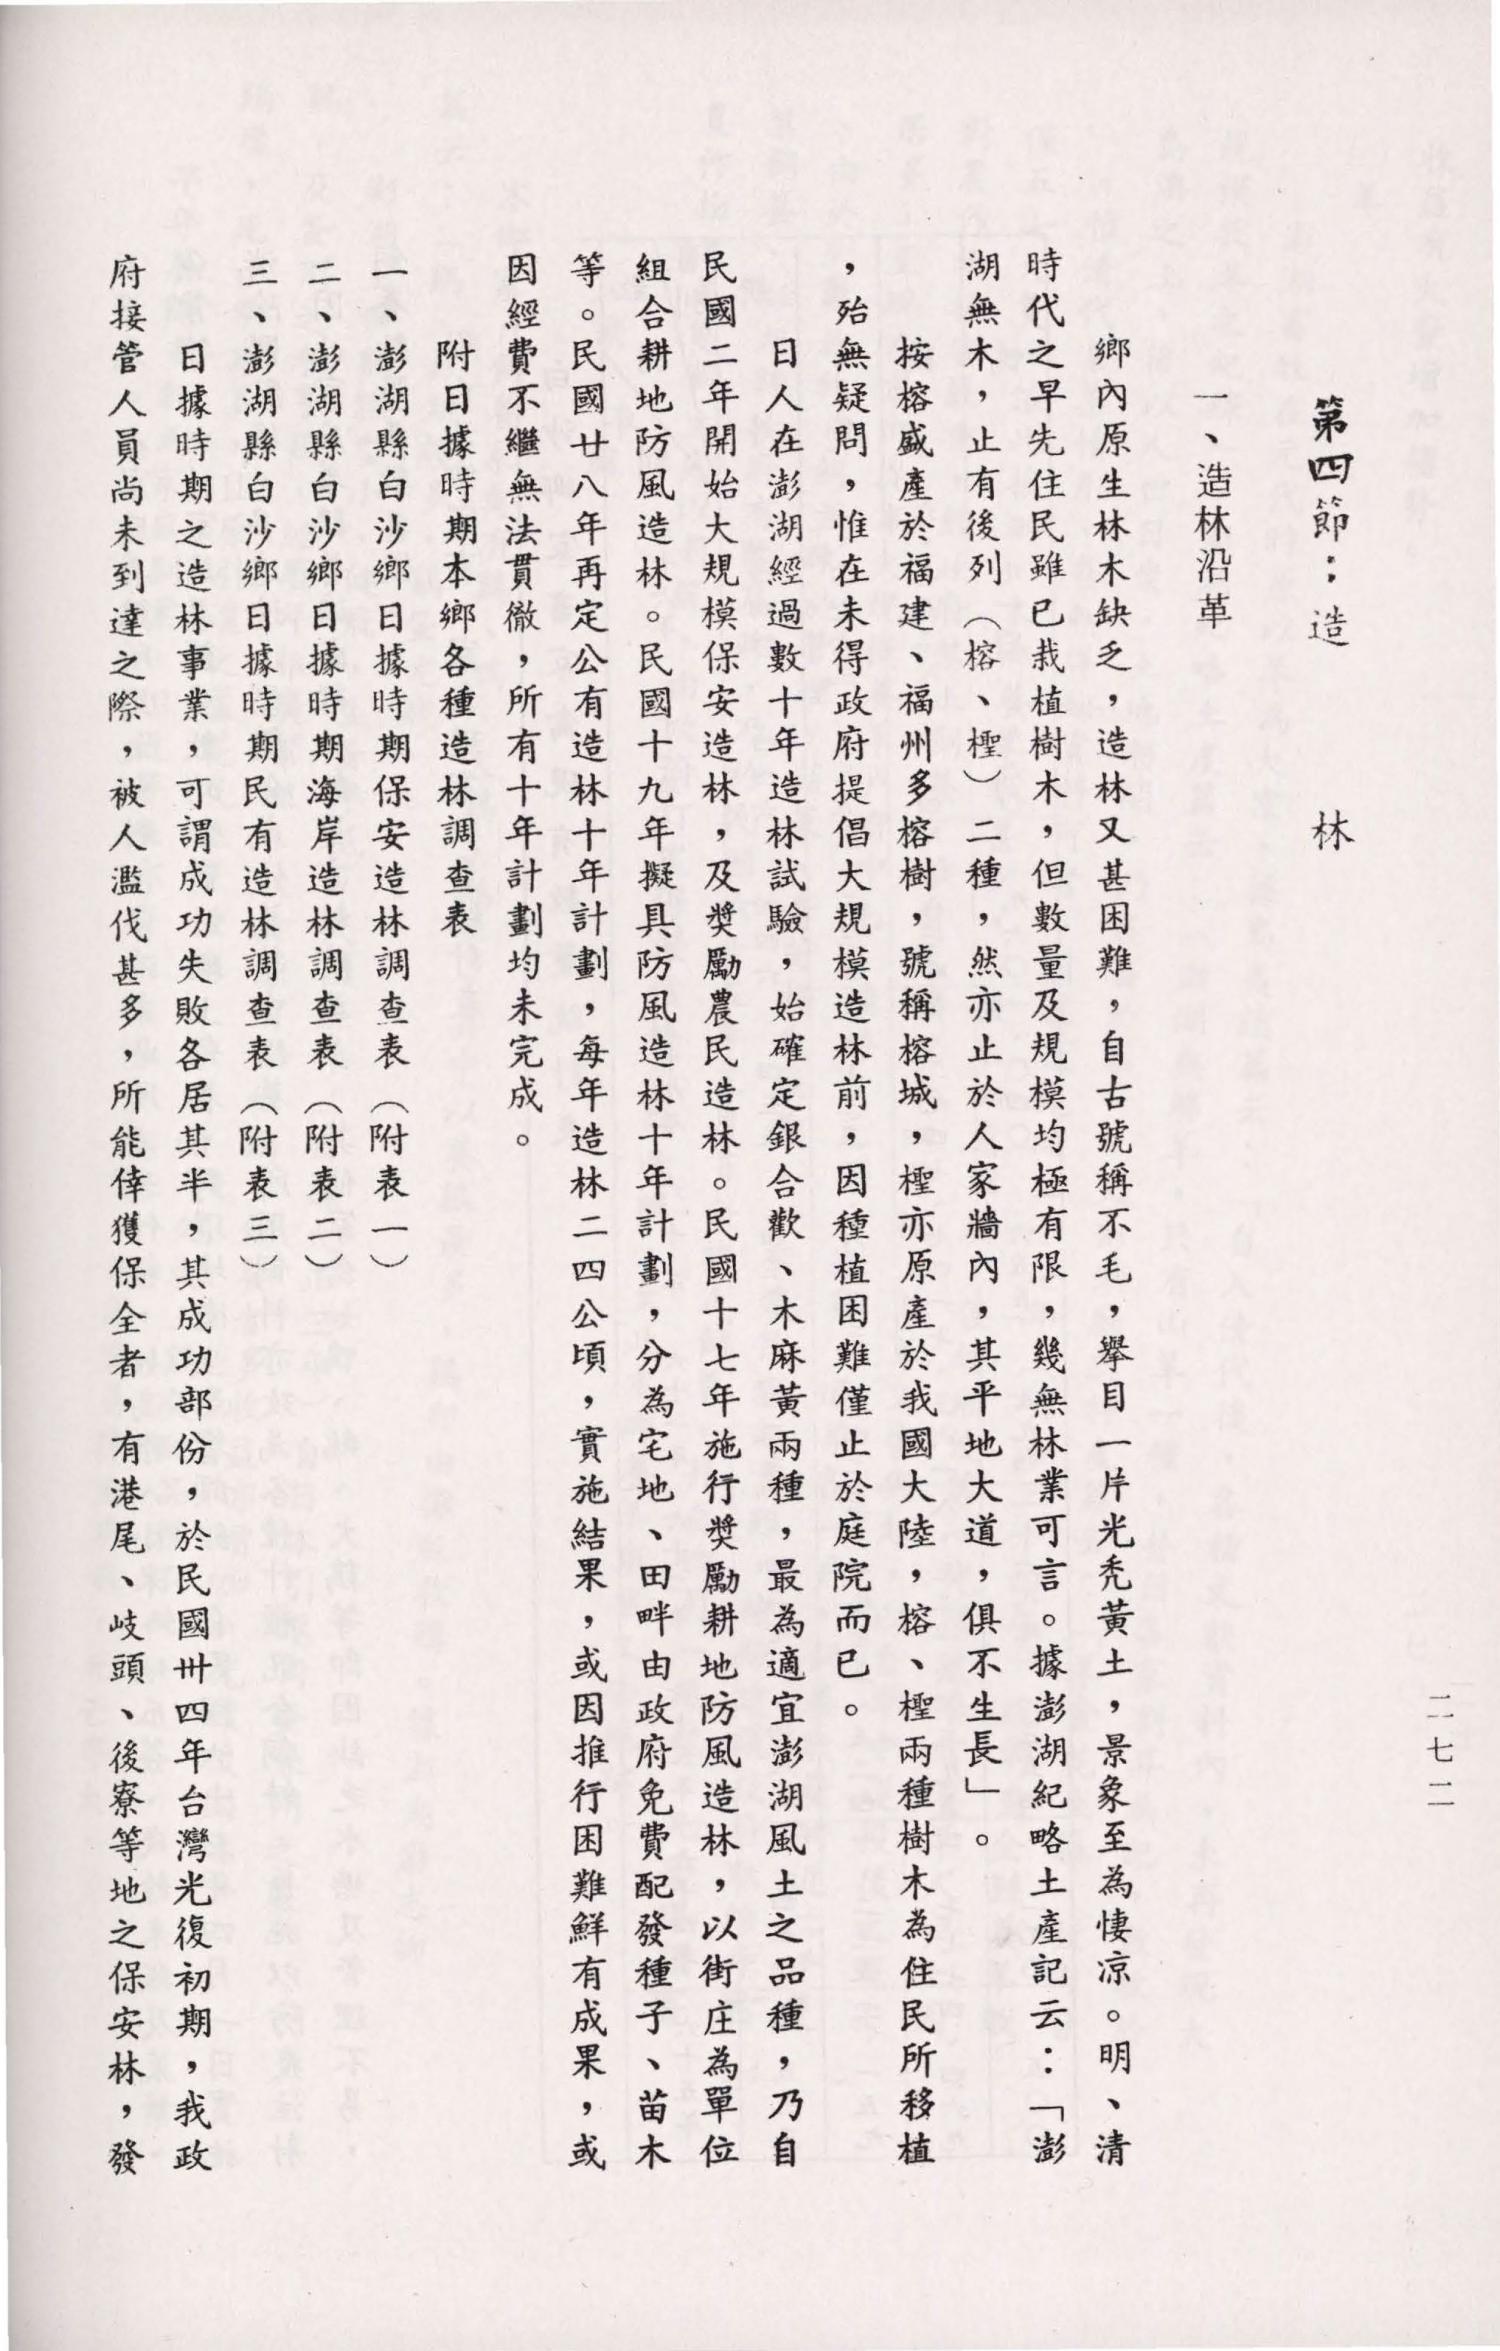 二七二
第四節：造　　林
一、造林沿革
鄉內原生林木缺乏，造林又甚困難，自古號稱不毛，舉目一片光禿黃土，景象至為悽涼。明、清
時代之早先住民雖已栽植樹木，但數量及規模均極有限，幾無林業可言。據澎湖紀略土產記云：「澎
湖無木，止有後列（榕、檉）二種，然亦止於人家牆內，其平地大道，俱不生長」。
按榕盛產於福建、福州多榕樹，號稱榕城，檉亦原產於我國大陸，榕、檉兩種樹木為住民所移植
，殆無疑問，惟在未得政府提倡大規模造林前，因種植困難僅止於庭院而已。
日人在澎湖經過數十年造林試驗，始確定銀合歡、木麻黃兩種，最為適宜澎湖風土之品種，乃自
民國二年開始大規模保安造林，及獎勵農民造林。民國十七年施行獎勵耕地防風造林，以街庄為單位
組合耕地防風造林。民國十九年擬具防風造林十年計劃，分為宅地、田畔由政府免費配發種子、苗木
等。民國廿八年再定公有造林十年計劃，每年造林二四公頃，實施結果，或因推行困難鮮有成果，或
因經費不繼無法貫徹，所有十年計劃均未完成。
附日據時期本鄉各種造林調查表
一、澎湖縣白沙鄉日據時期保安造林調查表（附表一）
二、澎湖縣白沙鄉日據時期海岸造林調查表（附表二）
三、澎湖縣白沙鄉日據時期民有造林調查表（附表三）
日據時期之造林事業，可謂成功失敗各居其半，其成功部份，於民國卅四年台灣光復初期，我政
府接管人員尚未到達之際，被人濫伐甚多，所能倖獲保全者，有港尾、岐頭、後寮等地之保安林，發